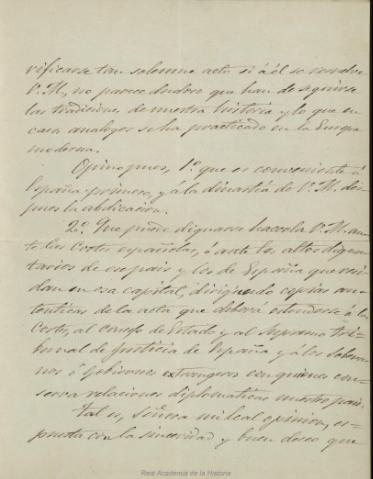 rificarse tan solemne acto si á él se resuelve
V. M., no parece dudoso que han de seguirse
las tradiciones de nuestra historia y lo que en
casos analogos se ha practicado en la Europa
moderna.
Opino pues, 1.º que es conveniente á
España primero, y á la dinastía de V. M. des-
pues la abdicacion.
2.º Que puede dignarse hacerla V. M. an-
te las Cortes españolas, ó ante los altos digna-
tarios de ese pais y los de España que resi-
dan en esa capital, dirigiendo copias au-
tenticas de la acta que deberá estenderse á las
Cortes, al Consejo de Estado y al Supremo tri-
bunal de Justicia de España y á los sobera-
nos ó gobiernos extrangeros con quienes con-
serva relaciones diplomaticas nuestro pais.
Tal es, Señora mi leal opinion, es-
puesta con la sinceridad y buen deseo que
Real Academia de la Historia